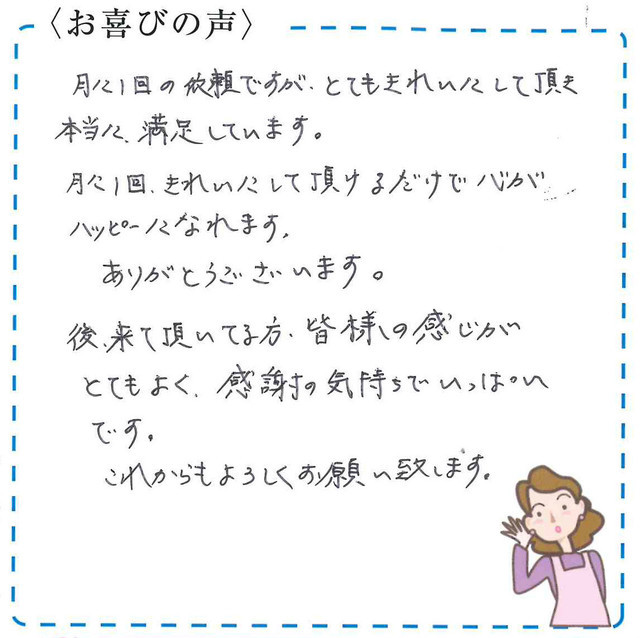 〈お喜びの声〉
月に1回の依頼ですが、とてもきれいにして頂き
本当に、満足しています。
月に1回、きれいにして頂けるだけで心が
ハッピーになれます。
ありがとうございます。
後、来て頂いてる方、皆様の感じが
とてもよく、感謝の気持ちでいっぱい
です。
これからもよろしくお願い致します。